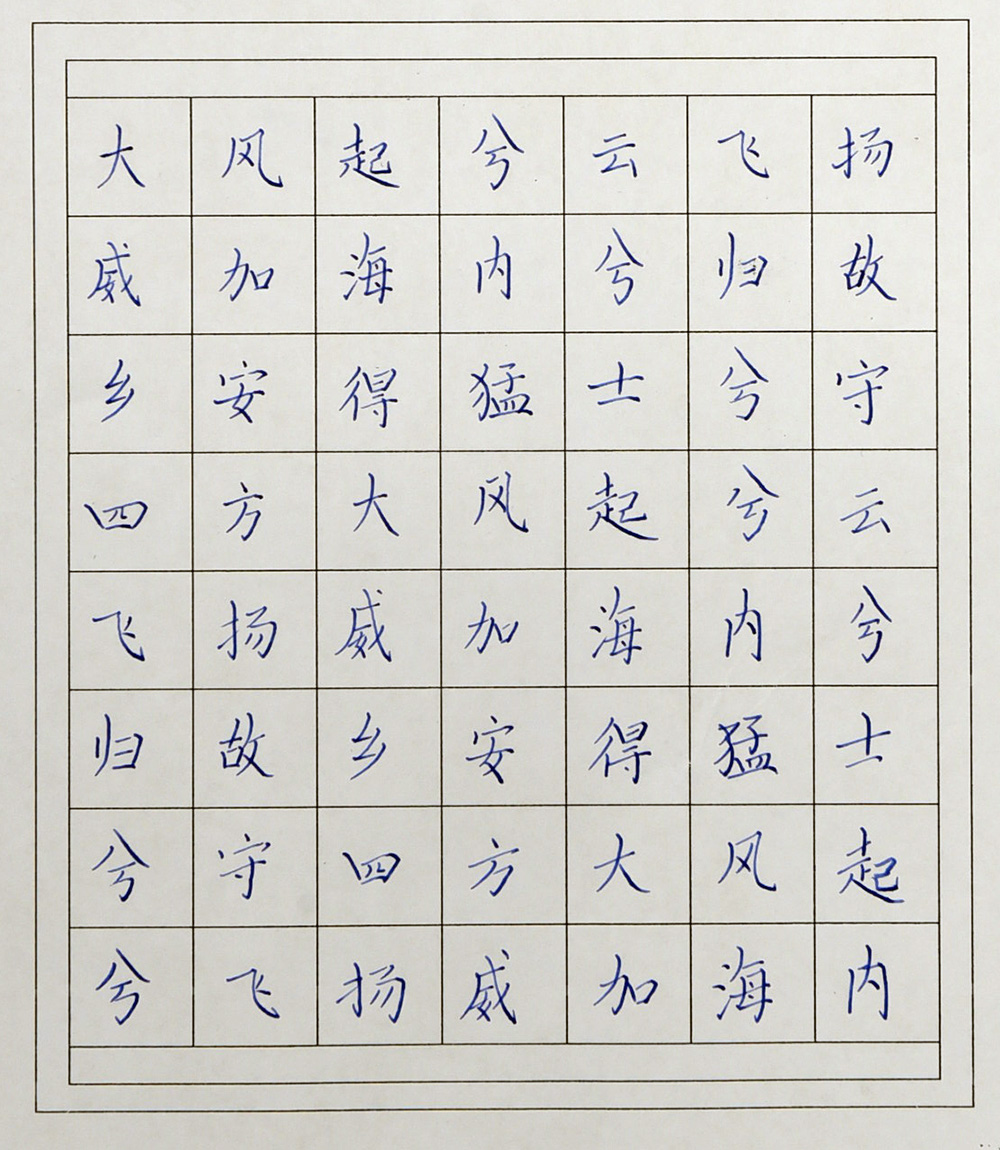 大风起兮云飞扬
威加海内兮归故
乡安得猛士兮守
四方大风起兮云
飞扬威加海内兮
归故乡安得猛士
兮守四方大风起
兮飞扬威加海内